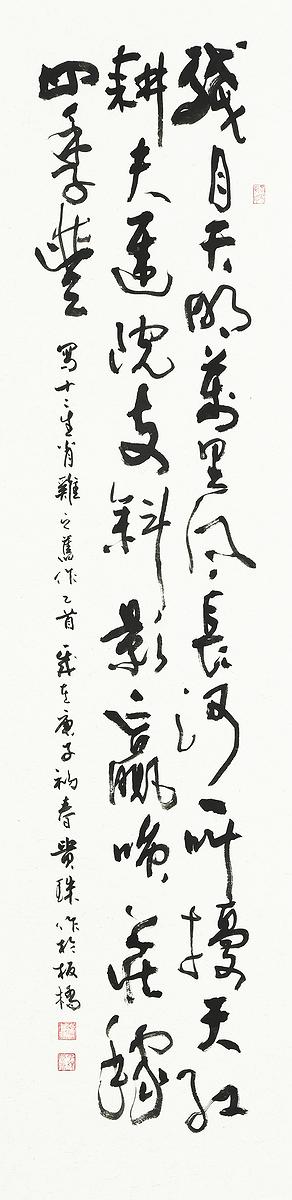 殘月天明萬里風長河一叫擾天紅
耕夫院支斜影贏喚莊稼
四季豐 寫十二生肖雞之舊作乙首 歲在庚子初春 貴珠作於板橋